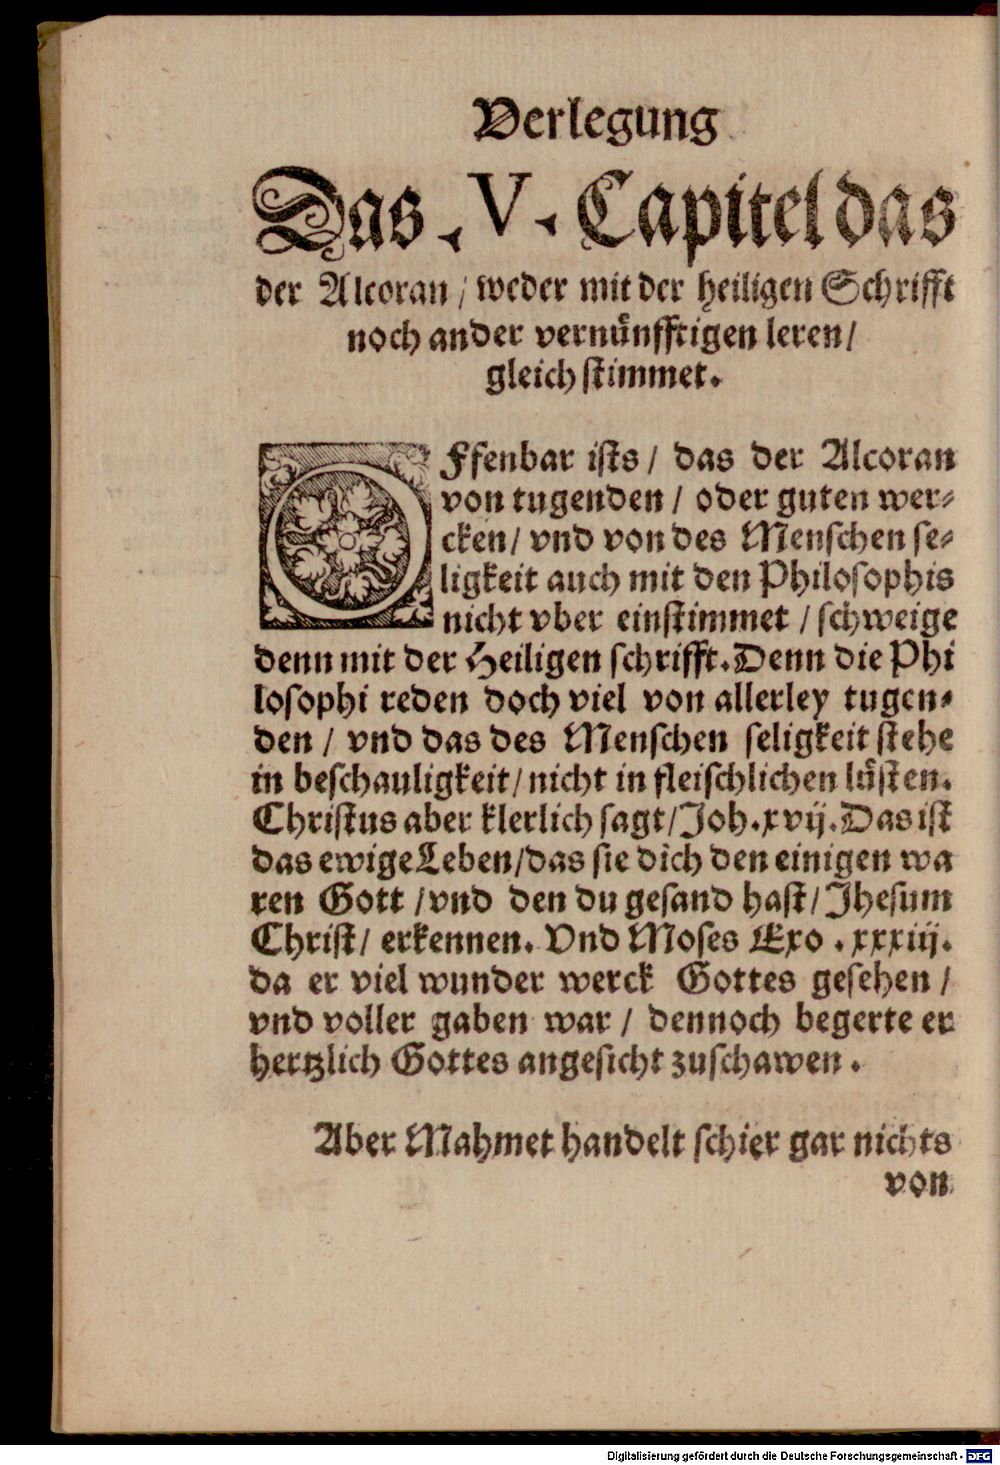 Verlegung
Das .V. Capitel das
der Alcoran / weder mit der heiligen Schrifft
noch ander vernünfftigen leren /
gleich stimmet.
OFfenbar ists / das der Alcoran
von tugenden / oder guten wer-
cken / vnd von des Menschen se-
ligkeit auch mit den Philosophis
nicht vber einstimmet / schweige
denn mit der Heiligen schrifft. Denn die Phi
losophi reden doch viel von allerley tugen-
den / vnd das des Menschen seligkeit stehe
in beschauligkeit / nicht in fleischlichen lüsten.
Christus aber klerlich sagt / Joh. xvij. Das ist
das ewige Leben / das sie dich den einigen wa
ren Gott / vnd den du gesand hast / Jhesum
Christ / erkennen. Vnd Moses Exo . xxxiij.
da er viel wunder werck Gottes gesehen /
vnd voller gaben war / dennoch begerte er
hertzlich Gottes angesicht zuschawen .
Aber Mahmet handelt schier gar nichts
von
Digitalisierung gefördert durch die Deutsche Forschungsgemeinschaft - DFG